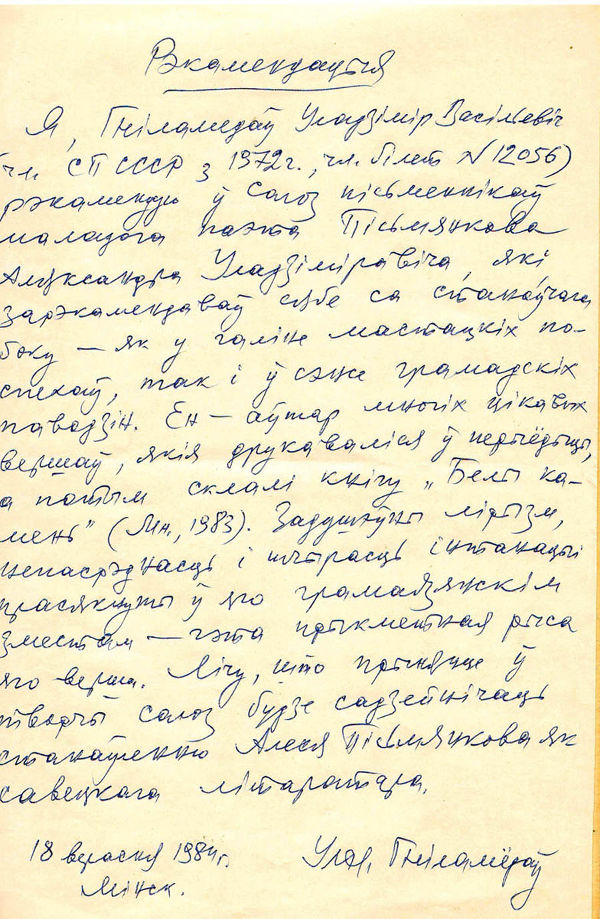 Рэкамендацыя
Я, Гніламёдаў Уладзімір Васільевіч
чл. СП СССР з 1972 г., чл. білет N 12056)
рэкамендую ў Саюз пісьменнікаў
маладога паэта Пісьмянкова
Аляксандра Уладзіміравіча, які
зарэкамендаваў сябе са станоўчага
боку — як у галіне мастацкіх по-
спехаў, так і ў сэнсе грамадскіх
паводзін. Ён — аўтар многіх цікавых
вершаў, якія друкаваліся ў перыёдыцы,
а потым склалі кнігу „Белы ка-
мень" (Мн., 1983). Задушэўны лірызм,
непасрэднасць і шчырасць інтанацыі
прасякнуты ў яго грамадзянскім
зместам — гэта прыкметная рыса
яго верша. Лічу, што прыняцце ў
творчы саюз будзе садзейнічаць
станаўленню Алеся Пісьмянкова як
савецкага літаратара.
18 верасня 1984 г.
Мінск.
Улад. Гніламёдаў